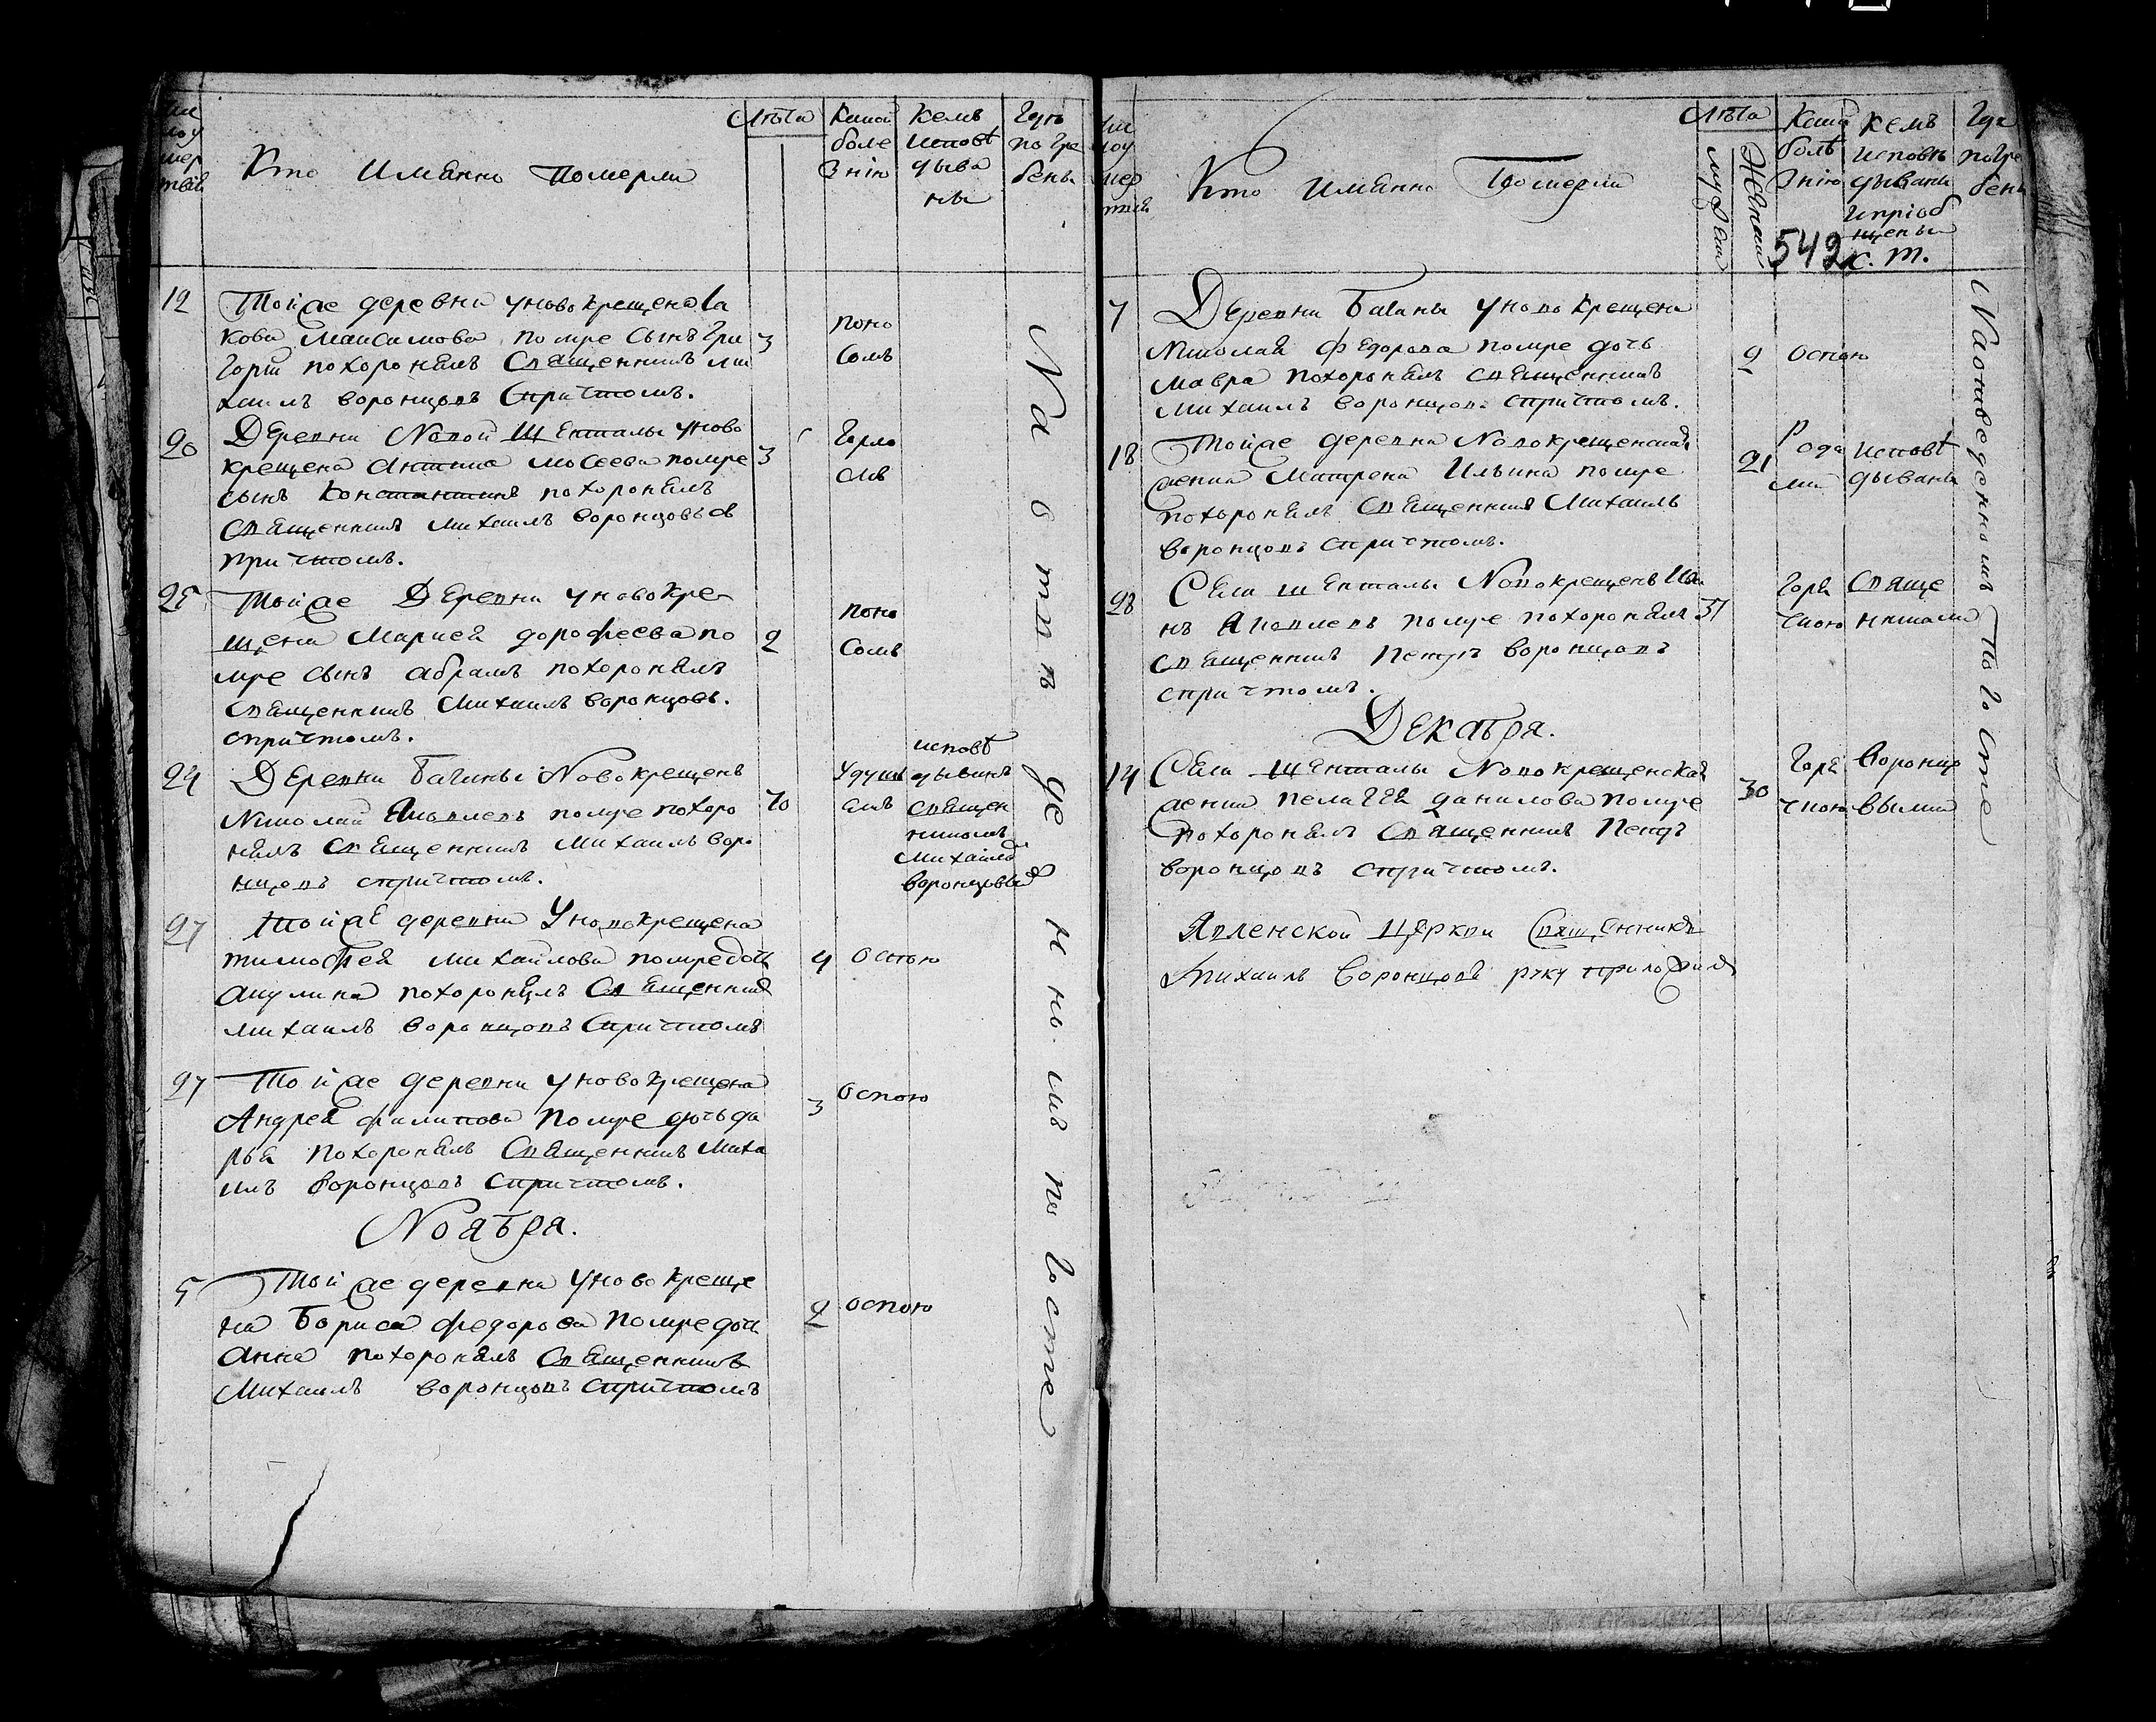 Кто Имянно Померли
Лѣта
Какой
боле
знію
Кемъ
исповѣ
дыва
ны
Гдѣ
погре
бены
12
Тойже деревни у новокрещена Іа
кова Максимова помре сынъ Гри
горій похоронялъ Священникъ ми
хаилъ воронцовъ спричтомъ.
3
поно
сомъ
20
Деревни Новой Шенталы уново
крещена Антипа Мосеева помре
сынъ Константинъ похоронялъ
Священникъ михаилъ воронцовъ съ
причтомъ.
3
Горло
мъ
25
Тойже Деревни уновокре
щена Маркея дорофеева по
мре сынъ абрамъ похоронялъ
Священникъ Михаилъ воронцовъ.
спричтомъ.
2
поно
сомъ
24
Деревни Баганы Новокрещенъ
Николай Яковлевъ помре похоро
нялъ Священникъ Михаилъ воро
нцовъ спричтомъ.
70
Удушь
емъ
исповѣ
дыванъ
священ
никомъ
михаиломъ
воронцовымъ
27
Тойже деревни Уновокрещена
тимофея михаилова помре дочь
акулина похоронялъ Священникъ
михаилъ воронцовъ спричтомъ
4
Оспою
27
Тойже деревни уновокрещена
Андрея филипова помре дочь да
рья похоронялъ Священникъ миха
илъ воронцовъ спричтомъ.
3
Оспою
Ноября.
5
Той же деревни Уновокреще
на Бориса федорова помре дочь
анна похоронялъ Священникъ
Михаилъ воронцовъ спричтомъ
2
оспою
На отведенномъ погосте
Кто имянно Померли
Лѣта
мужеска
Женска
Какой
болѣ
знію
кемъ
исповѣ
дываны
ипріоб
щены
с. т.
Гдѣ
погре
бены
549
7
Деревни Баганы уновокрещена
Николая Федорова помре дочь
мавра похоронялъ священникъ
Михаилъ воронцовъ спричтомъ.
9
оспою
18
Тойже деревни Новокрещенская
жена Матрена Ильина помре
похоронялъ Священникъ Михаилъ
воронцовъ спричтомъ.
21
Рода
ми
исповѣ
дывана
28
Села шенталы Новокрещенъ Ива
нъ Яковлевъ помре похоронялъ
священникъ Петръ воронцовъ
спричтомъ.
37
Горя
чкою
Свяще
никами
Декабря.
14
Села Шенталы Новокрещенская
жена пелагея данилова помре
похоронялъ Священникъ Петръ
воронцовъ спричтомъ.
30
Горя
чкою
Воронцо
выми
Явленской Церкви Священникъ
Михаилъ Воронцовъ руку приложилъ
На отведенномъ Погосте